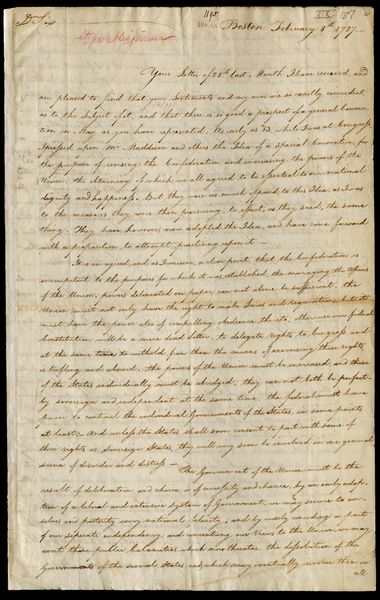 Dr Sir
1195
Boston February 8th 1787.—
Your Letter of 28th last Month I have received, and
am pleased to find that your Sentiments and my own are so nearly coincident
as to the Subject of it, and that there is so good a prospect of a general Conven-
tion in May, as you have represented. As early as 83, while I was at Congress,
I pressed upon Mr Maddison and others the Idea of a special Convention, for
the purpose of revising the Confederation and increasing the powers of the
Union; the obtaining of which we all agreed to be essential to our national
dignity and happiness. But they were as much opposed to this Idea, as I was
to the measures they were then pursuing, to effect, as they said, the same
thing. They have however, now adopted the Idea, and have come forward
with a proposition to attempt, practising upon it—
It is an agreed, and as I conceive, a clear point, that the Confederation is
incompetent to the purposes for which it was established, the managing the Affairs
of the Union, powers delineated on paper cannot alone be sufficient, the
Union must not only have the right to make Laws and requisitions, but it
must have the power also of compelling obedience thereto, otherwise our federal
Constitution will be a mere dead letter, to delegate rights to Congress and
at the same time to withhold from them the means of exercising those rights
is trifling and absurd. the powers of the Union must be increased, and those
of the States individually must be abridged, they can not both be perfect-
ly sovereign and independent at the same time, the federal must have
power to controul the individual Governments of the States, in some points
at least; And unless the States shall soon consent to part with some of
their rights as Sovereign States, they will very soon be involved in one general
scene of disorder and distress—
The Government of the Union must be the
result of deliberation and choice, or of necessity and chance, by an early adop-
tion of a liberal and extensive System of Government, we may secure to our-
selves and posterity every national felicity, and by wisely conceding a part
of our separate independency, and concentring our Views to the Union, we may
avert those public Calamities, which now threaten the dissolution of the
Governments of the several States and which may eventually involve them in
all